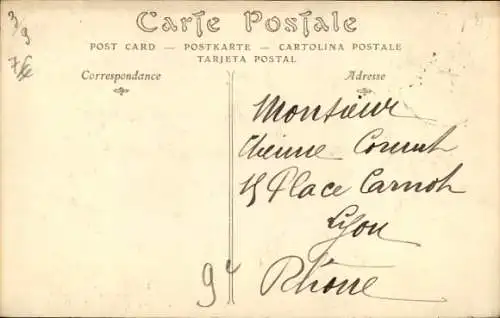 Carte Postale
POST CARD — POSTKARTE — CARTOLINA POSTALE
TARJETA POSTAL
Correspondance
Adresse
Monsieur
15 Place Carnot
Lyon
Rhône
94